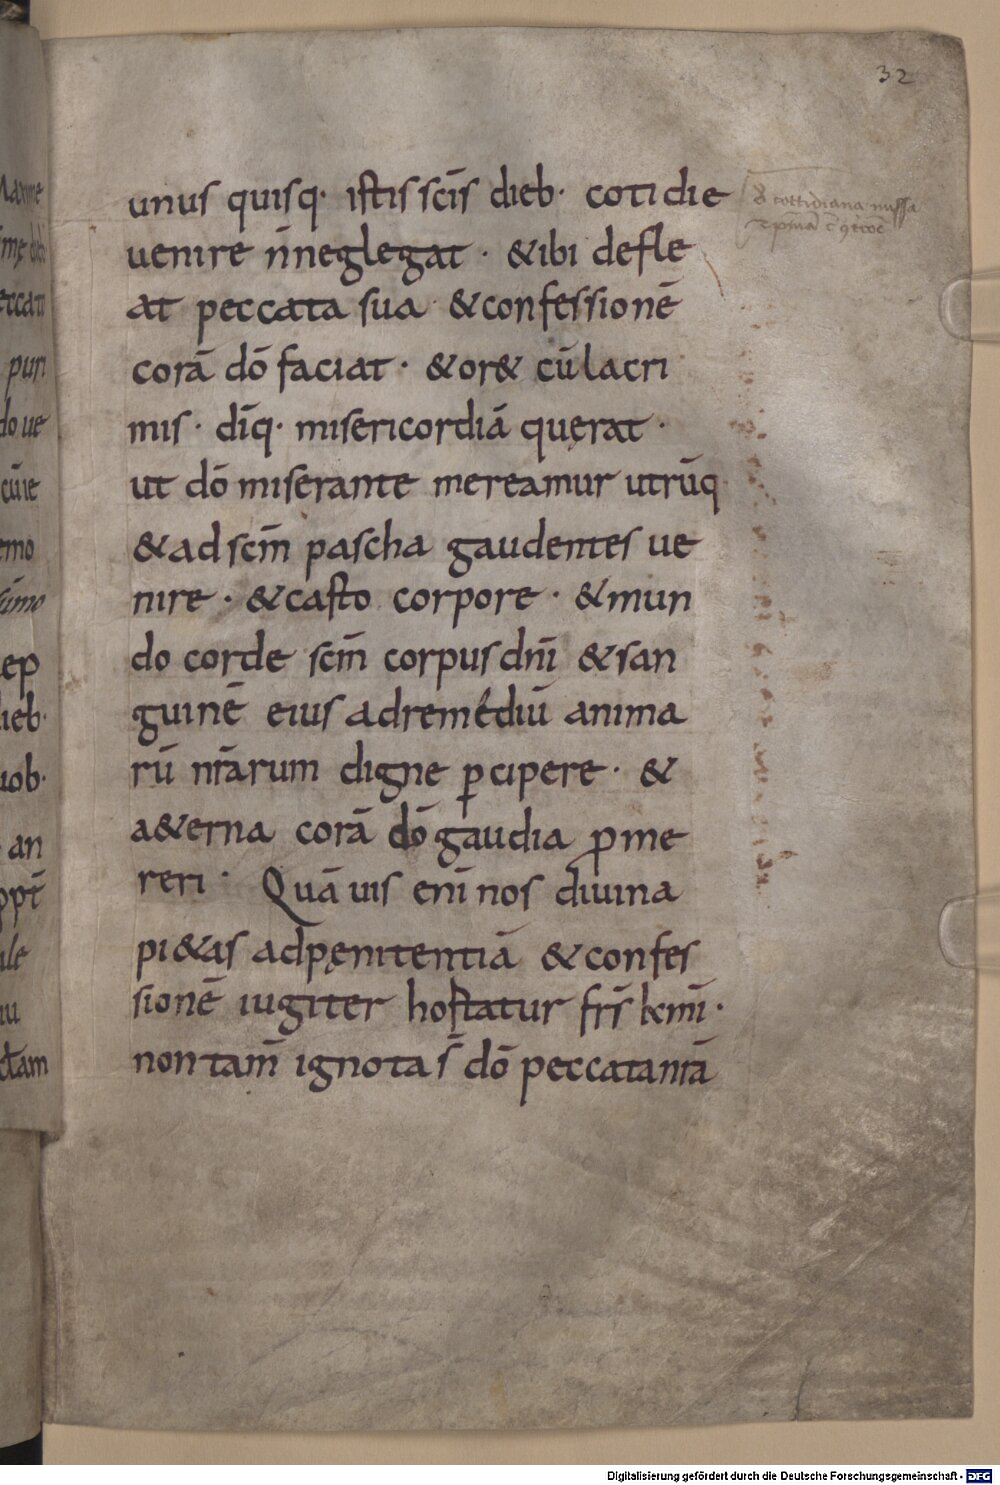 32
unus quisq· istis scīs dieb· cotidie
uenire n̄neglegat · &ibi defle
at peccata sua &confessionē
corā dō faciat · &or& cū lacri
mis · dīq· misericordiā quęrat ·
ut dō miserante mereamur utrūq
&ad scm̄ pascha gaudentes ue
nire · &casto corpore · &mun
do corde scm̄ corpus dnī &san
guinē eius adremédiū anima
rū nr̄arum digne ꝑcipere · &
a&erna corā dō gaudia ꝓme
reri · Quāuis enī nos diuina
pi&as adpęnitentiā &confes
sionē iugiter hostatur frīs kmī·
non tam̄ ignota s̄ dō peccata nr̄ā
cottidiana missa
Digitalisierung gefördert durch die Deutsche Forschungsgemeinschaft - DFG